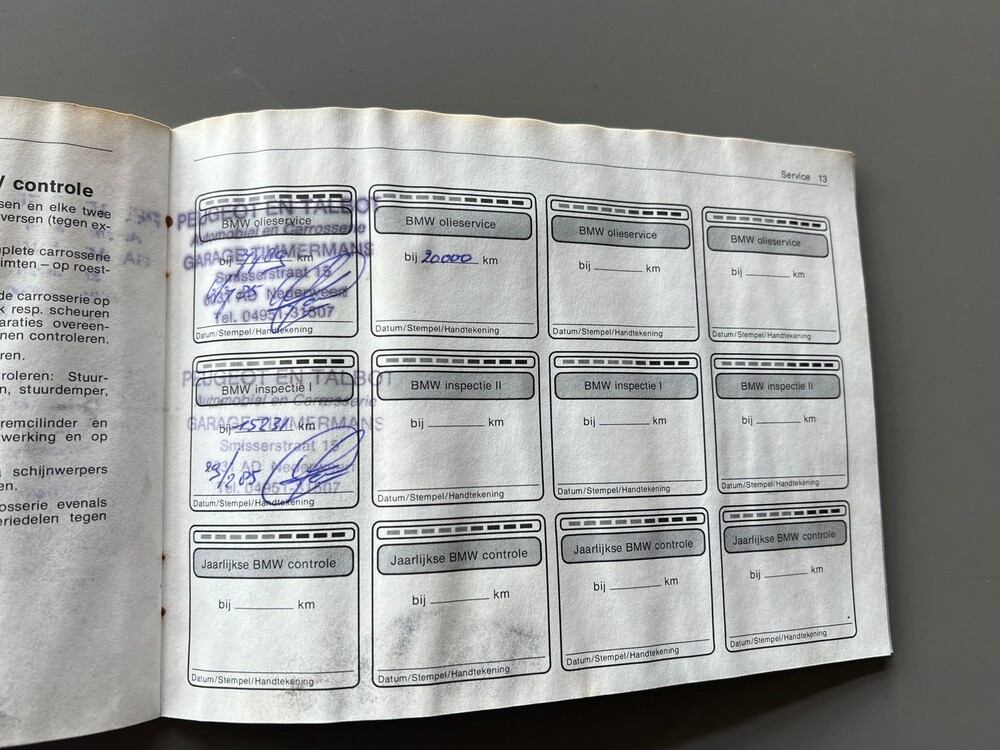 controle
sen en elke twee
versen (tegen ex-
plete carrosserie
imten – op roest-
de carrosserie op
k resp. scheuren
araties overeen-
nen controleren.
ren.
roleren: Stuur-
n, stuurdemper,
remcilinder en
werking en op
schijnwerpers
en.
osserie evenals
eriedelen tegen
Service 13
BMW olieservice
bij km
PEUGEOT EN TALBOT
Automobiel en Carrosserie
GARAGE TIMMERMANS
Smisserstraat 15
6031 AD Nederweert
Tel. 04951-31807
Datum/Stempel/Handtekening
BMW olieservice
bij 20000 km
Datum/Stempel/Handtekening
BMW olieservice
bij km
Datum/Stempel/Handtekening
BMW olieservice
bij km
Datum/Stempel/Handtekening
BMW inspectie I
bij 15231 km
PEUGEOT EN TALBOT
Automobiel en Carrosserie
GARAGE TIMMERMANS
Smisserstraat 15
6031 AD Nederweert
Tel. 04951-31807
Datum/Stempel/Handtekening
BMW inspectie II
bij km
Datum/Stempel/Handtekening
BMW inspectie I
bij km
Datum/Stempel/Handtekening
BMW inspectie II
bij km
Datum/Stempel/Handtekening
Jaarlijkse BMW controle
bij km
Datum/Stempel/Handtekening
Jaarlijkse BMW controle
bij km
Datum/Stempel/Handtekening
Jaarlijkse BMW controle
bij km
Datum/Stempel/Handtekening
Jaarlijkse BMW controle
bij km
Datum/Stempel/Handtekening